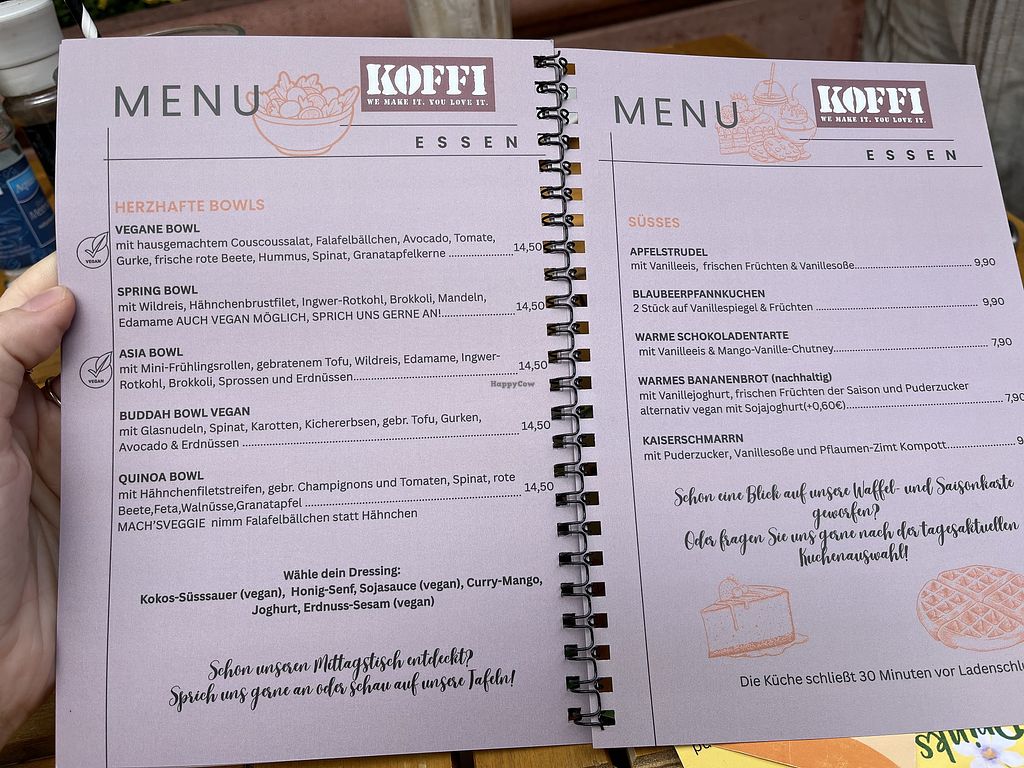 MENU
KOFFI
WE MAKE IT. YOU LOVE IT.
ESSEN
HERZHAFTE BOWLS
VEGANE BOWL
mit hausgemachtem Couscoussalat, Falafelbällchen, Avocado, Tomate,
Gurke, frische rote Beete, Hummus, Spinat, Granatapfelkerne ..................... 14,50
VEGAN
SPRING BOWL
mit Wildreis, Hähnchenbrustfilet, Ingwer-Rotkohl, Brokkoli, Mandeln,
Edamame AUCH VEGAN MÖGLICH, SPRICH UNS GERNE AN!........................ 14,50
ASIA BOWL
mit Mini-Frühlingsrollen, gebratenem Tofu, Wildreis, Edamame, Ingwer-
Rotkohl, Brokkoli, Sprossen und Erdnüssen..................................................... 14,50
VEGAN
BUDDAH BOWL VEGAN
mit Glasnudeln, Spinat, Karotten, Kichererbsen, gebr. Tofu, Gurken,
Avocado & Erdnüssen .......................................................................................... 14,50
QUINOA BOWL
mit Hähnchenfiletstreifen, gebr. Champignons und Tomaten, Spinat, rote
Beete,Feta,Walnüsse,Granatapfel ...................................................................... 14,50
MACH'SVEGGIE nimm Falafelbällchen statt Hähnchen
Wähle dein Dressing:
Kokos-Süsssauer (vegan), Honig-Senf, Sojasauce (vegan), Curry-Mango,
Joghurt, Erdnuss-Sesam (vegan)
Schon unseren Mittagstisch entdeckt?
Sprich uns gerne an oder schau auf unsere Tafeln!
MENU
KOFFI
WE MAKE IT. YOU LOVE IT.
ESSEN
SÜSSES
APFELSTRUDEL
mit Vanilleeis, frischen Früchten & Vanillesoße..................................... 9,90
BLAUBEERPFANNKUCHEN
2 Stück auf Vanillespiegel & Früchten ..................................................... 9,90
WARME SCHOKOLADENTARTE
mit Vanilleeis & Mango-Vanille-Chutney................................................. 7,90
WARMES BANANENBROT (nachhaltig)
mit Vanillejoghurt, frischen Früchten der Saison und Puderzucker
alternativ vegan mit Sojajoghurt(+0,60€).................................................. 7,90
KAISERSCHMARRN
mit Puderzucker, Vanillesoße und Pflaumen-Zimt Kompott..................... 9
Schon eine Blick auf unsere Waffel- und Saisonkarte
geworfen?
Oder fragen Sie uns gerne nach der tagesaktuellen
Kuchenauswahl!
Die Küche schließt 30 Minuten vor Ladenschlu
HappyCow
Drinks